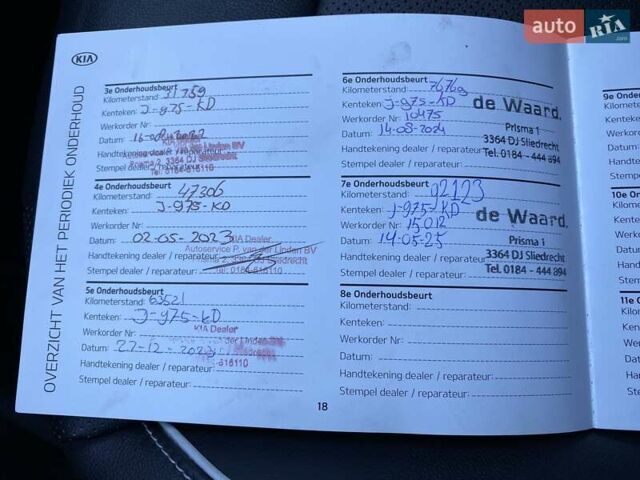 auto RIA.com
KIA
OVERZICHT VAN HET PERIODIEK ONDERHOUD
3e Onderhoudsbeurt
Kilometerstand: 31759
Kenteken: J-975-KD
Werkorder Nr:
Datum:
KIA Dealer
Handtekening dealer / reparateur:
3364 DJ Sliedrecht
Stempel dealer / reparateur:
4e Onderhoudsbeurt
Kilometerstand: 47306
Kenteken: J-975-KD
Werkorder Nr:
Datum: 02-05-2023
KIA Dealer
Autoservice P. van der Linden BV
Handtekening dealer / reparateur:
Stempel dealer / reparateur:
tel: 0184-616110
5e Onderhoudsbeurt
Kilometerstand: 63521
Kenteken: J-975-KD
Werkorder Nr:
KIA Dealer
der Linden BV
Datum: 27-12-2023
Handtekening dealer / reparateur:
Stempel dealer / reparateur:
6e Onderhoudsbeurt
Kilometerstand:
Kenteken: J-975-KD
Werkorder Nr: 10475
Datum: 14-08-2024
Handtekening dealer / reparateur:
Stempel dealer / reparateur:
de Waard.
Prisma 1
3364 DJ Sliedrecht
Tel. 0184 - 444 894
7e Onderhoudsbeurt
Kilometerstand: 92123
Kenteken: J-975-KD
Werkorder Nr: 15012
Datum: 14-05-25
Handtekening dealer / reparateur:
Stempel dealer / reparateur:
de Waard.
Prisma 1
3364 DJ Sliedrecht
Tel. 0184 - 444 894
8e Onderhoudsbeurt
Kilometerstand:
Kenteken:
Werkorder Nr:
Datum:
Handtekening dealer / reparateur:
Stempel dealer / reparateur:
18
9e Onder
Kilometer
Kenteken:
Werkorder
Datum:
Handteken
Stempel de
10e On
Kilometer
Kenteken
Werkord
Datum:
Handtek
Stempel
11e O
Kilome
Kente
Werk
Datu
Han
Ste